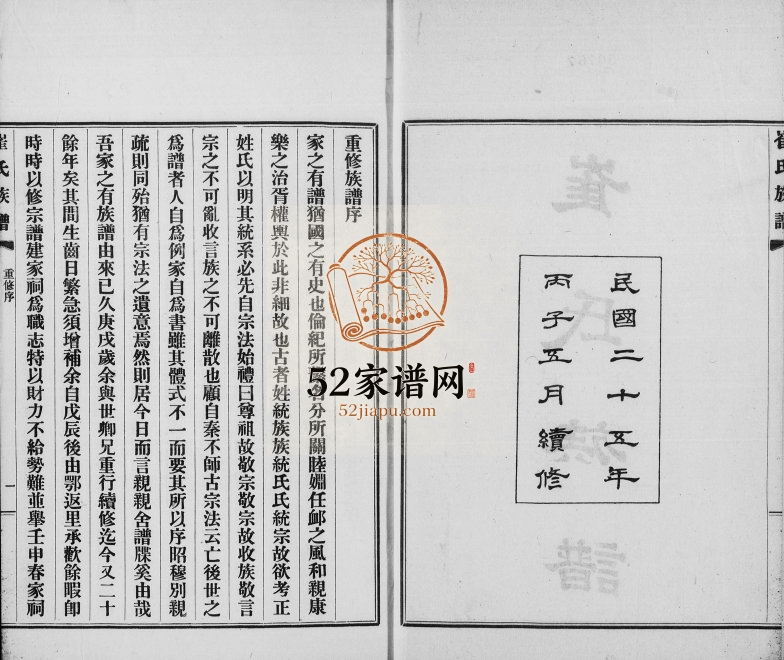 崔氏族譜
民國二十五年
丙子五月續修
重修族譜序
家之有譜猶國之有史也倫紀所分所關睦婣任䘏之風和親康
樂之治胥權輿於此非細故也古者姓統族族統氏氏統宗故欲考正
姓氏以明其統系必先自宗法始禮曰尊祖故敬宗敬宗故收族敬言
宗之不可亂收言族之不可離散也顧自秦不師古宗法云亡後世之
爲譜者人自爲例家自爲書雖其體式不一而要其所以序昭穆別親
疏則同殆猶有宗法之遺意焉然則居今日而言親親舍譜牒奚由哉
吾家之有族譜由來已久庚戌歲余與世卿兄重行續修迄今又二十
餘年矣其間生齒日繁急須增補余自戊辰後由鄂返里承歡餘暇卽
時時以修宗譜建家祠爲職志特以財力不給勢難並舉壬申春家祠
崔氏族譜
重修序
一
52家谱网
52jiapu.com